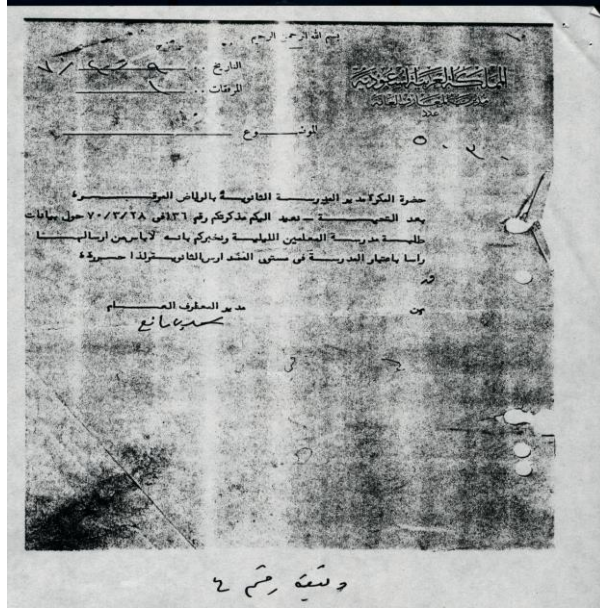 بسم الله الرحمن الرحيم
المملكة العربية السعودية
مديرية المعارف العامة
عدد
التاريخ ..
المرفقات ..
الموضوع
حضرة المكرم مدير المدرسة الثانوية بالرياض الموقر
بعد التحية - نعيد اليكم مذكرتكم رقم ١٣٦ في ٧٠/٣/٢٨ حول بيانات
طلبة مدرسة المعلمين الليلية ونخبركم بانه لا باس من ارسالها
راسا باعتبار المدرسة في مستوى المدارس الثانوية ولذا حرر
مدير المعارف العام
وثيقة رقم ٤